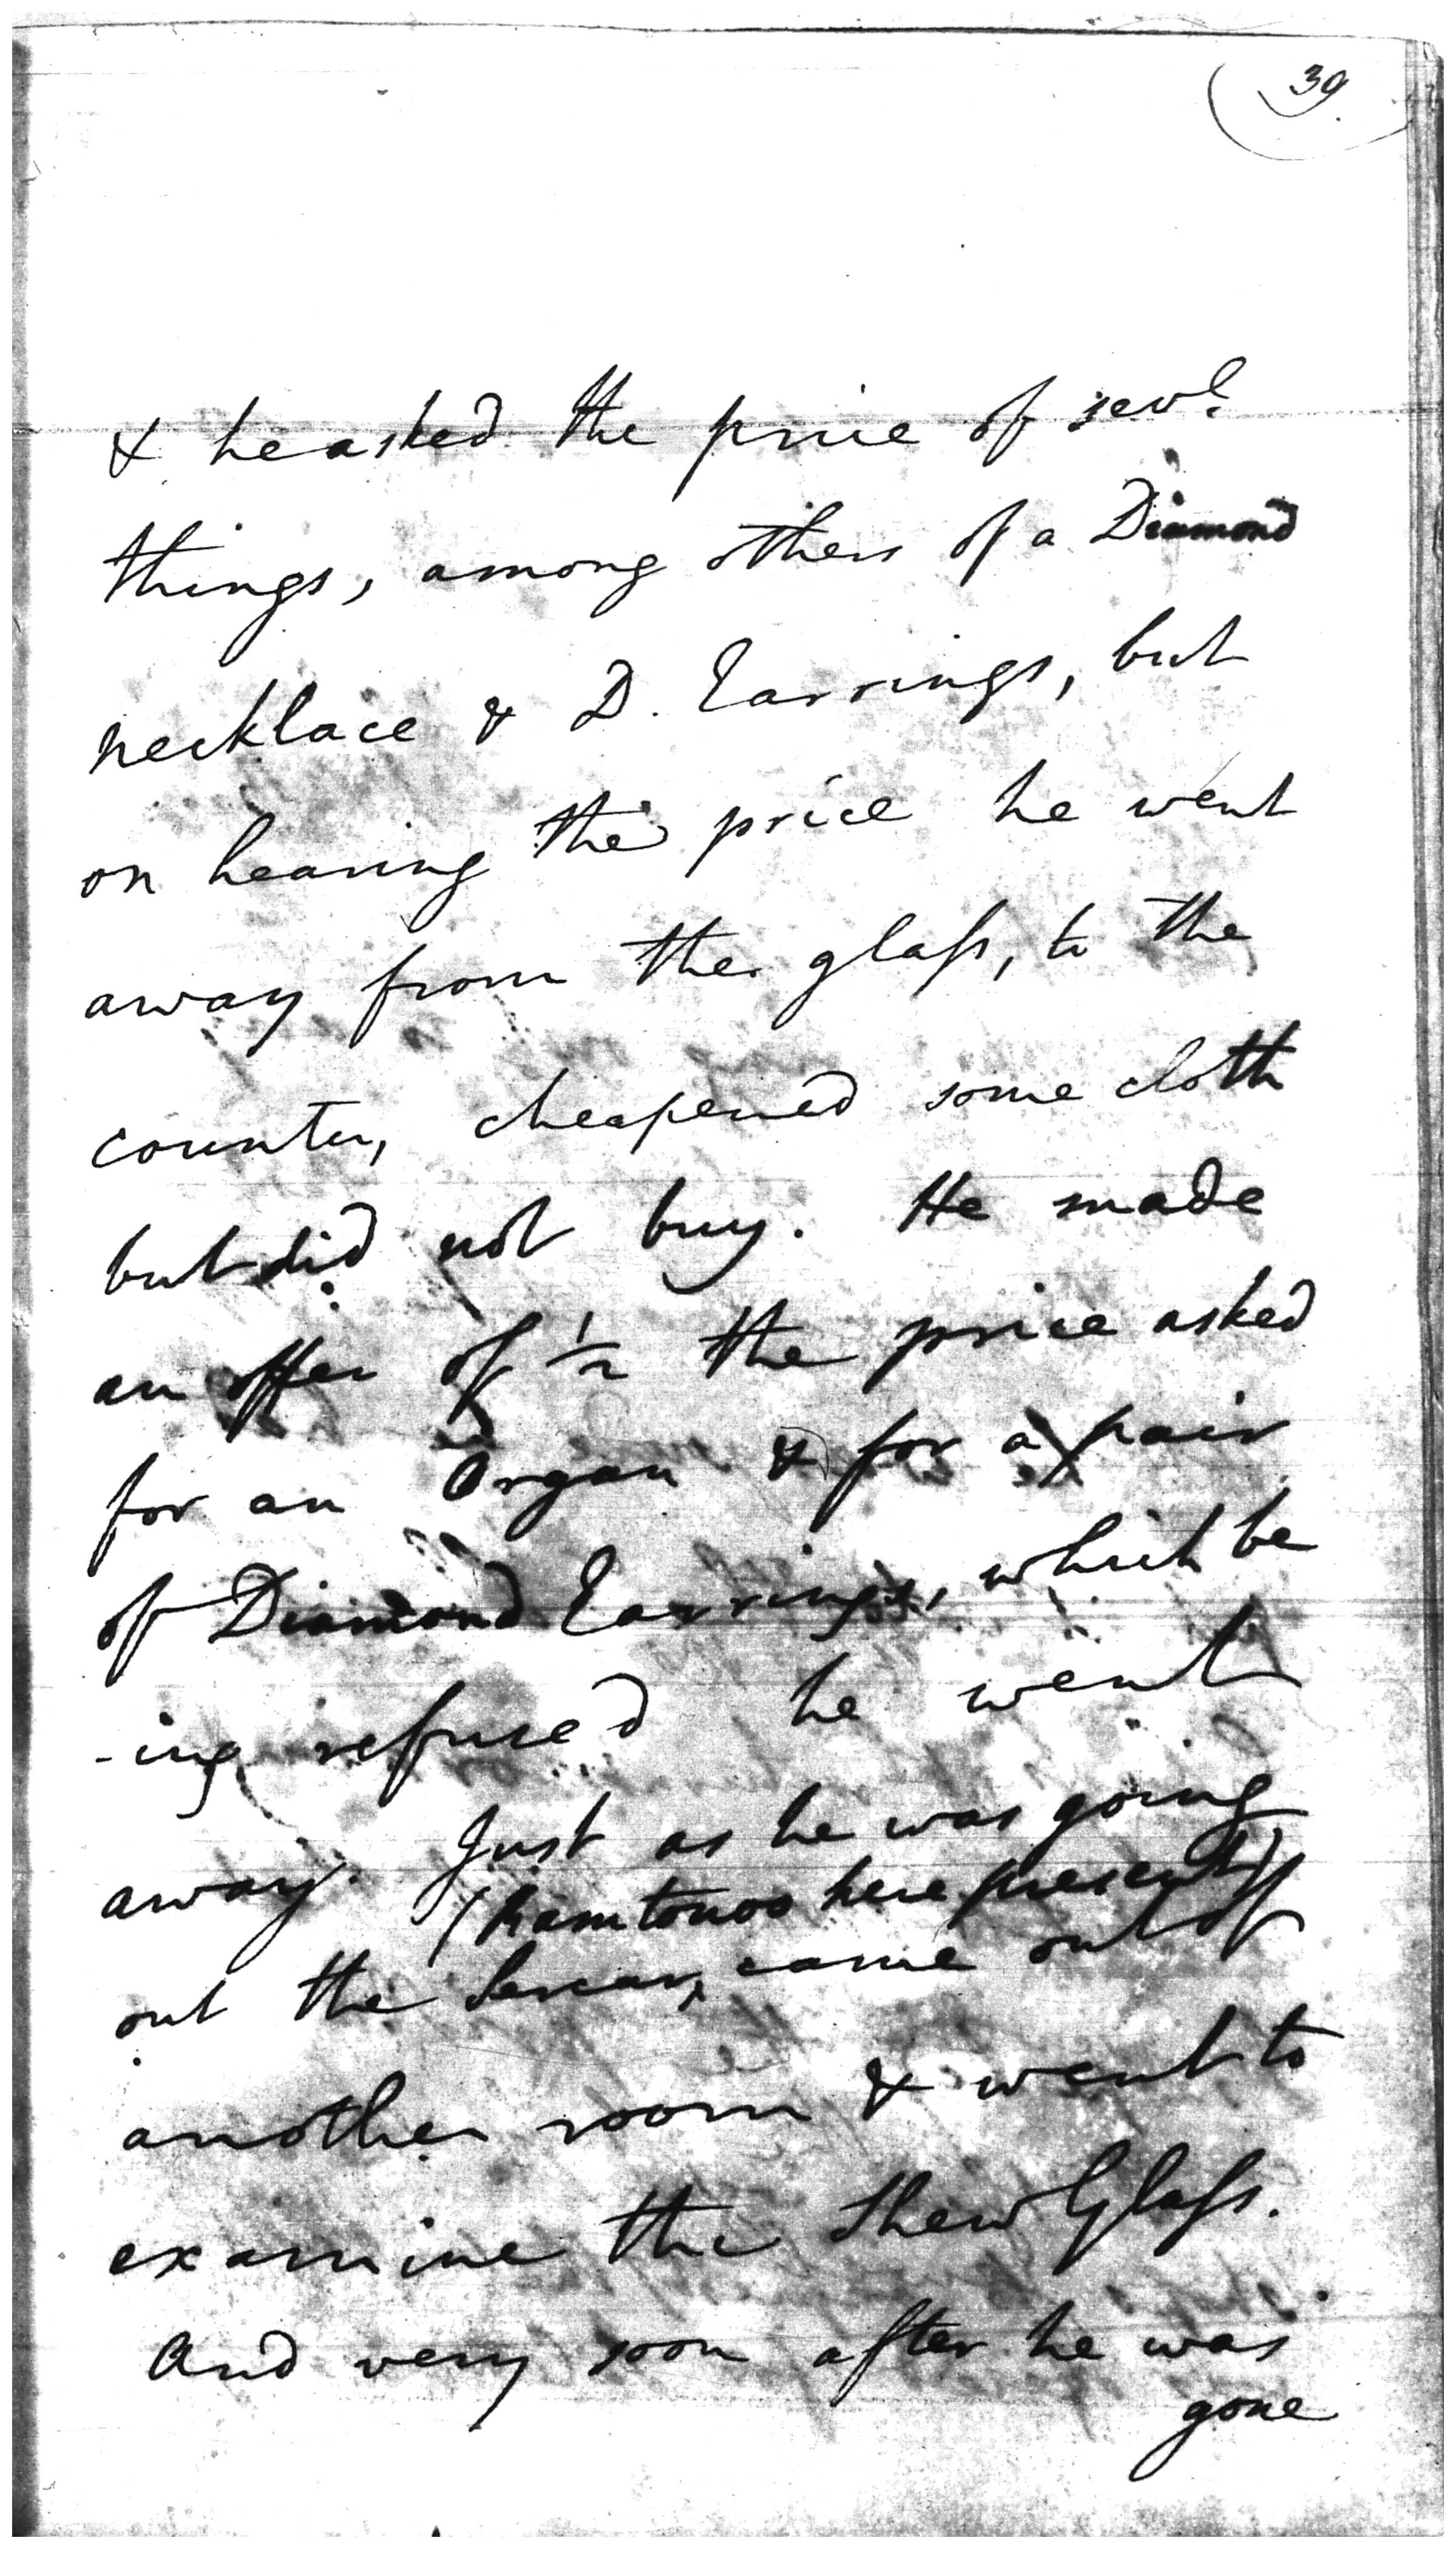 39.
& he asked the price of sevl.
things, among others of a Diamond
necklace & D. Earrings, but
on hearing the price he went
away from the glaſs, to the
counter, cheapened some cloth
but did not buy. He made
an offer of ½ the price asked
for an Organ & for a pair
of Diamond Earrings, which be
-ing refused he went
away. Just as he was going
(Ramtonoo here present)
out the Sircar, came out of
another room & went to
examine the Shew Glaſs.
And very soon after he was
gone